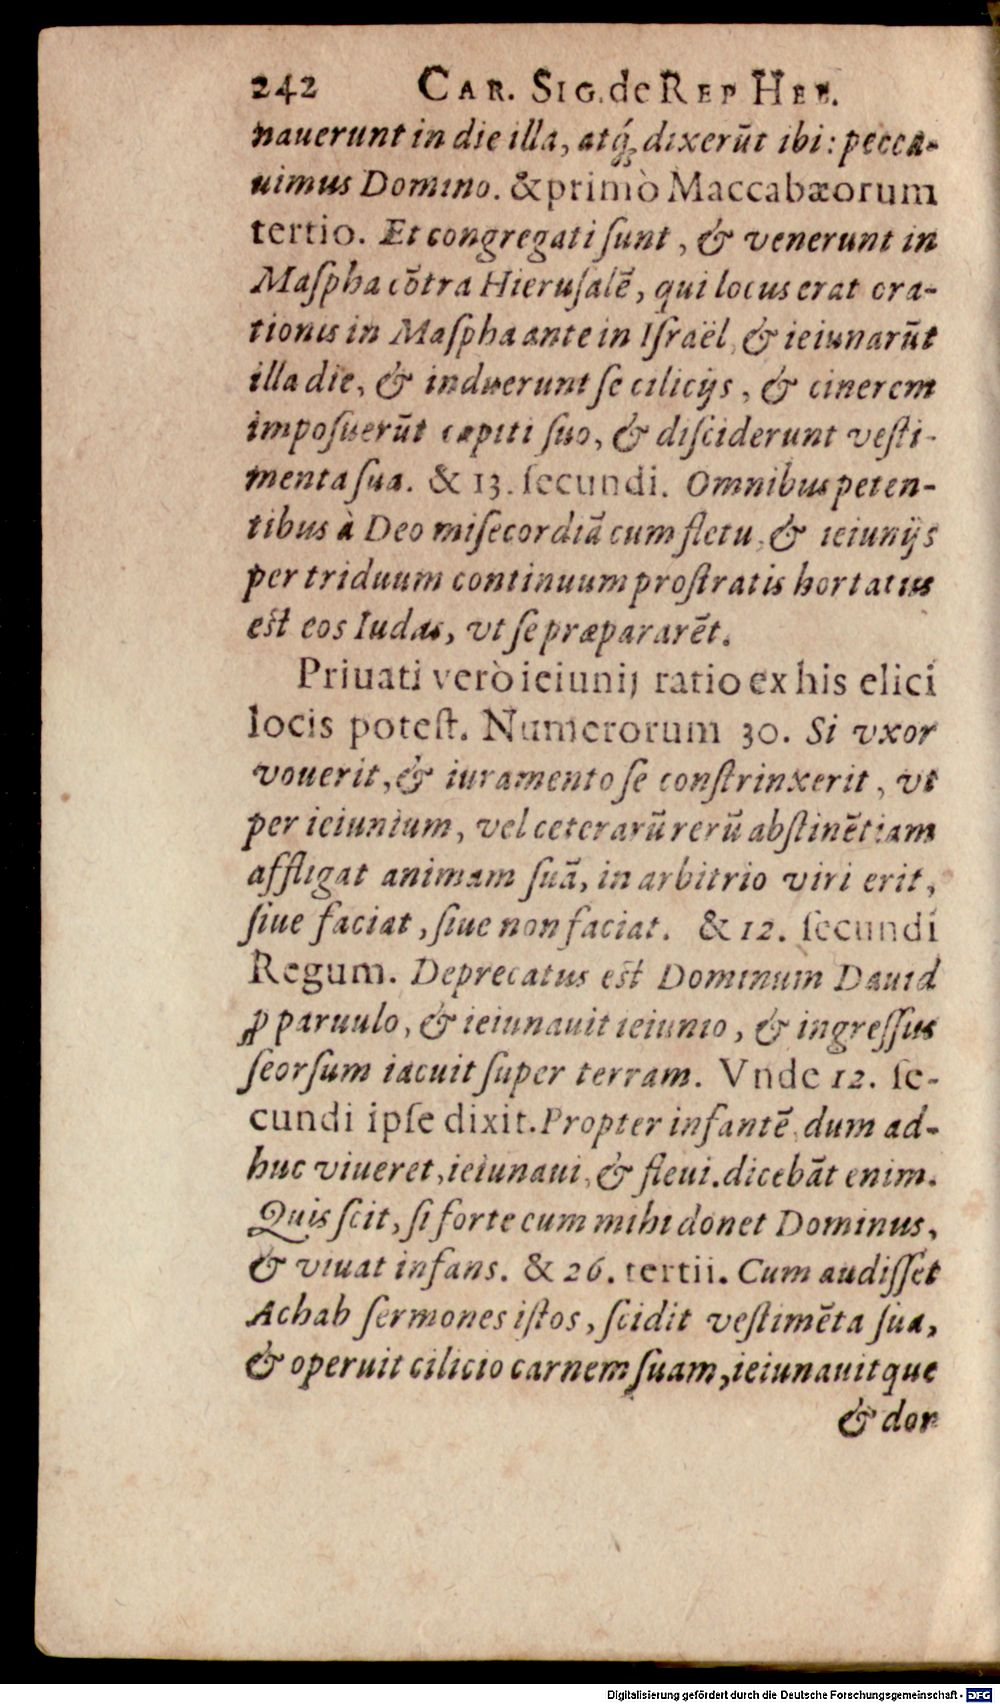 242 CAR. SIG. de REP HEB.
nauerunt in die illa, atq́ꝫ dixerūt ibi: pecca-
uimus Domino. & primò Maccabæorum
tertio. Et congregati ſunt, & venerunt in
Maſpha cōtra Hieruſalē, qui locus erat ora-
tionis in Maſpha ante in Iſraël, & ieiunarūt
illa die, & induerunt ſe cilicijs, & cinerem
impoſuerūt capiti ſuo, & diſciderunt veſti-
menta ſua. & 13. ſecundi. Omnibus peten-
tibus à Deo miſecordiā cum fletu, & ieiunijs
per triduum continuum proſtratis hortatus
eſt eos Iudas, vt ſe præpararēt.
Priuati verò ieiunij ratio ex his elici
locis poteſt. Numerorum 30. Si vxor
vouerit, & iuramento ſe conſtrinxerit, vt
per ieiunium, vel ceterarū rerū abſtinētiam
affligat animam ſuā, in arbitrio viri erit,
ſiue faciat, ſiue non faciat. & 12. ſecundi
Regum. Deprecatus eſt Dominum Dauid
ꝓ paruulo, & ieiunauit ieiunio, & ingreſſus
ſeorſum iacuit ſuper terram. Vnde 12. ſe-
cundi ipſe dixit. Propter infantē, dum ad-
huc viueret, ieiunaui, & fleui. dicebāt enim.
Quis ſcit, ſi forte cum mihi donet Dominus,
& viuat infans. & 26. tertii. Cum audiſſet
Achab ſermones iſtos, ſcidit veſtimēta ſua,
& operuit cilicio carnem ſuam, ieiunauitque
& dor
Digitalisierung gefördert durch die Deutsche Forschungsgemeinschaft - DFG